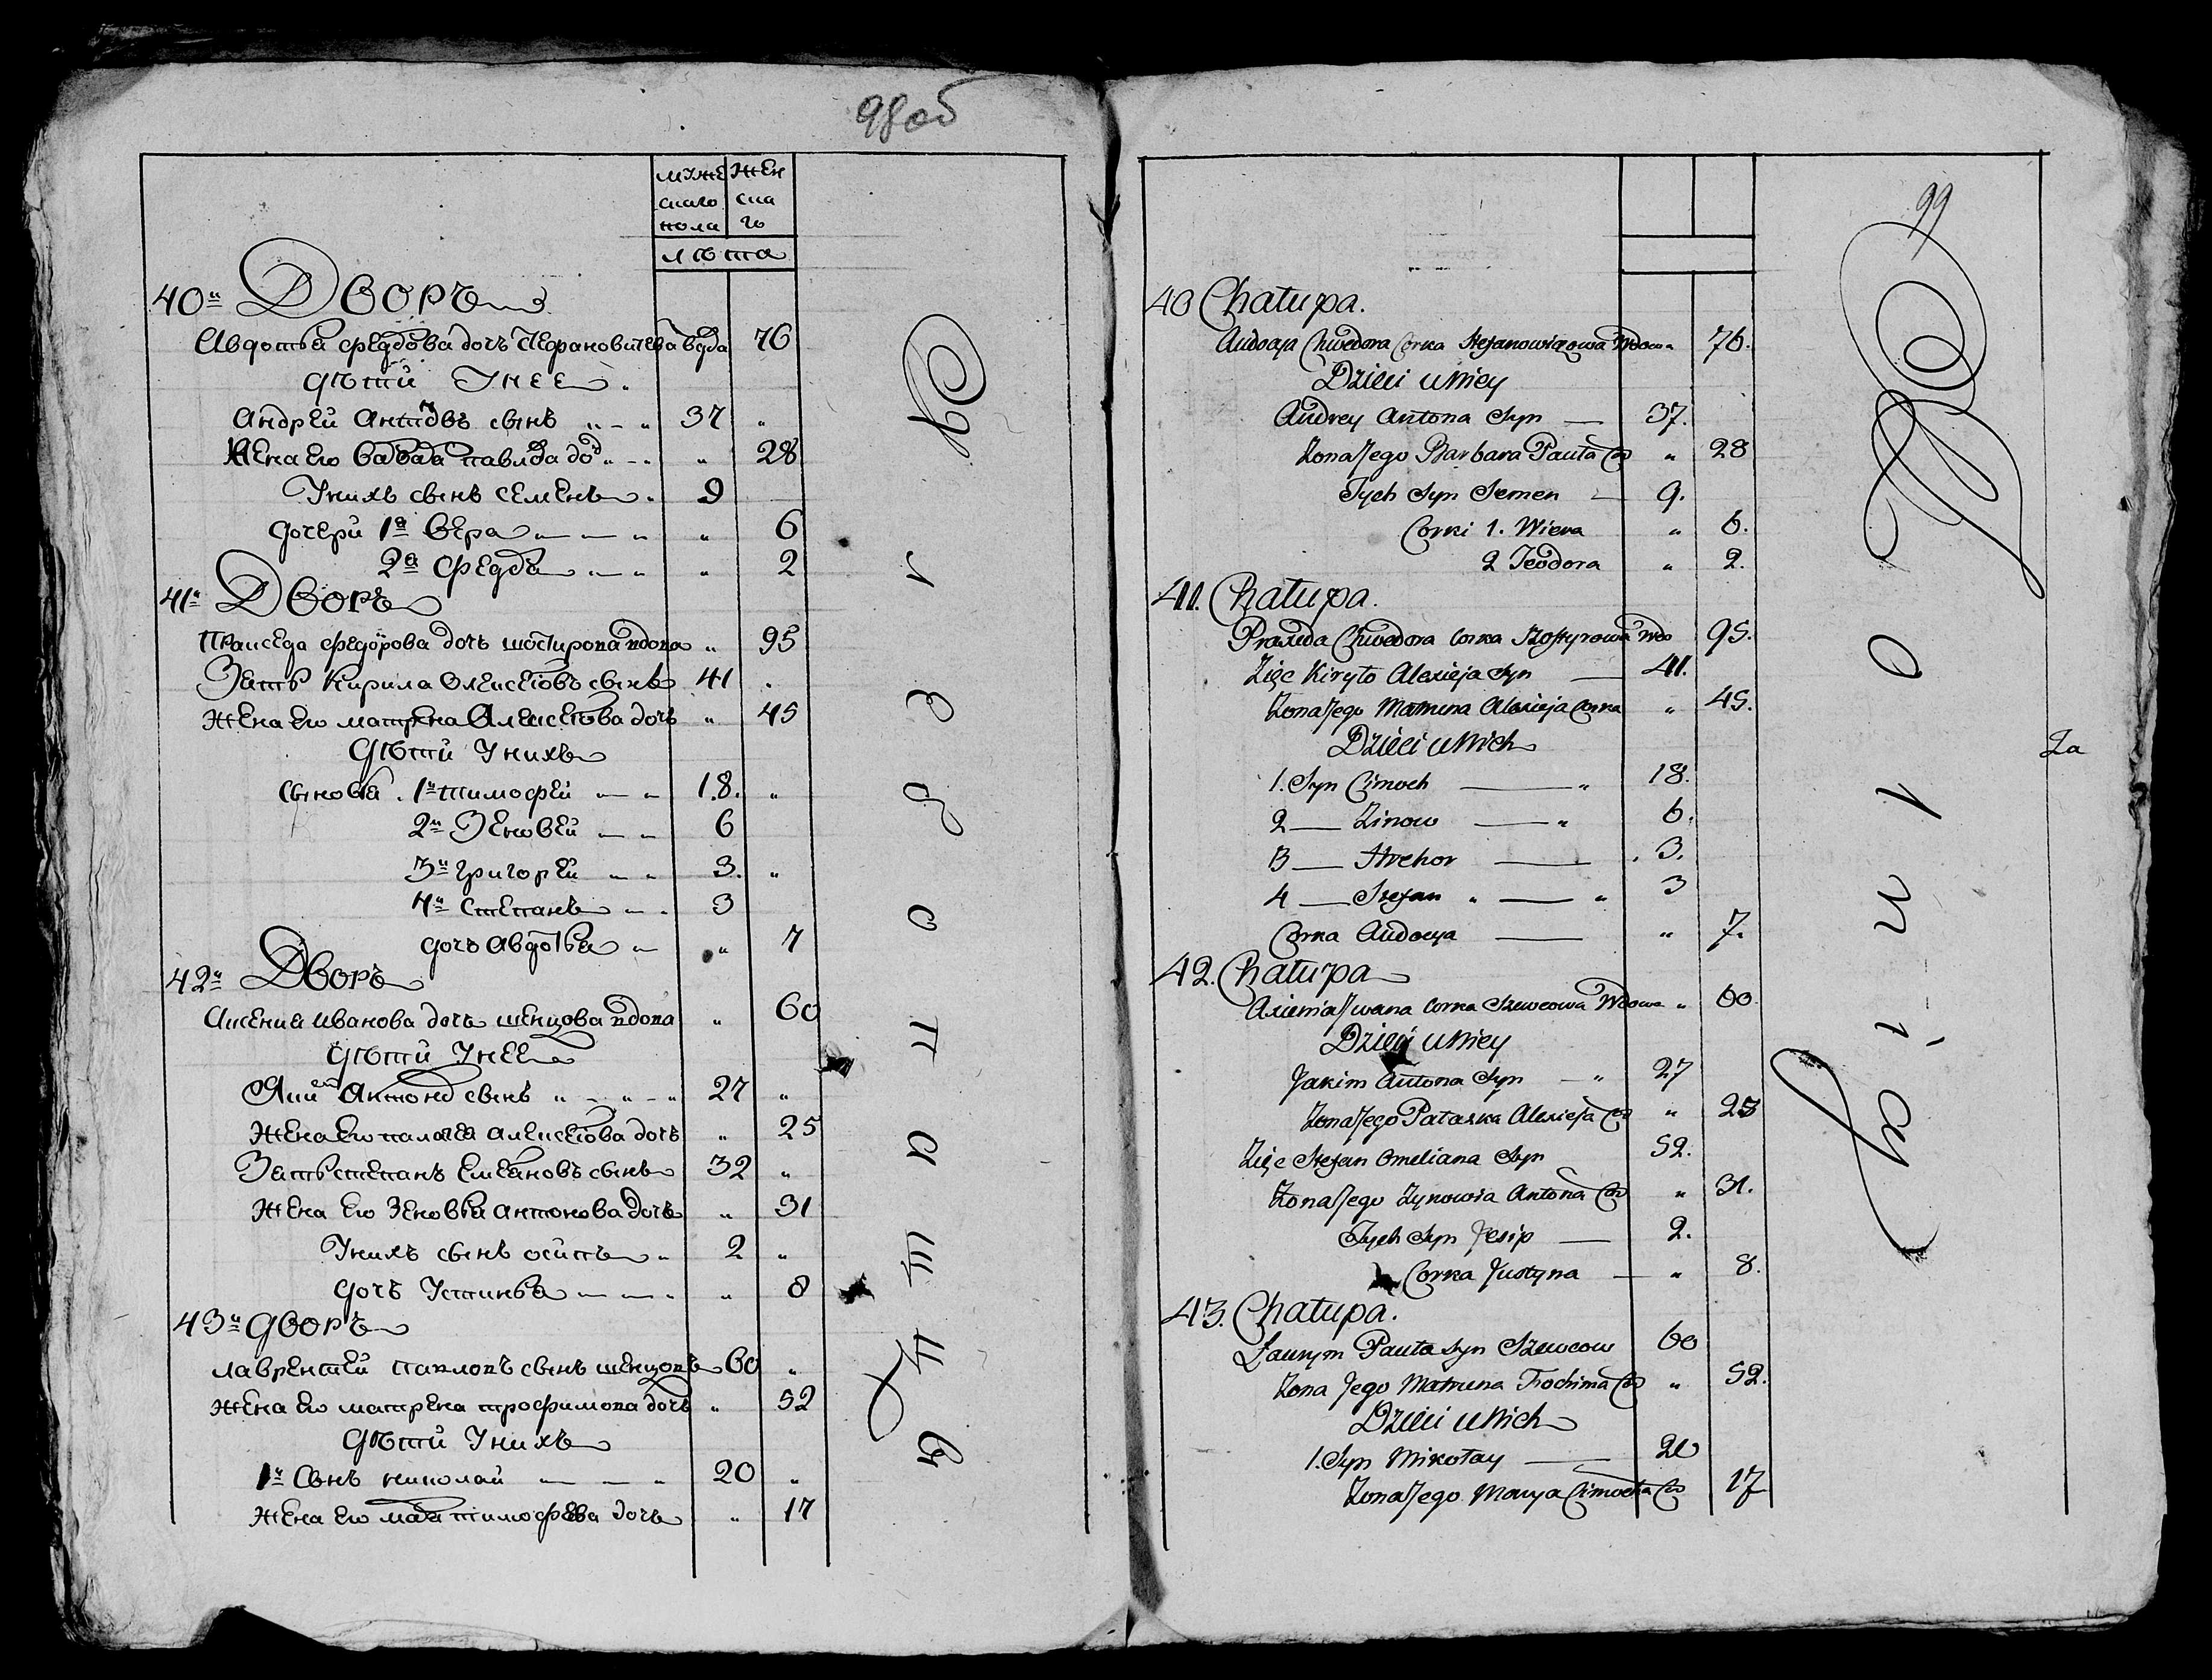 98об
муже женскаго ска
пола го
лѣта
40й Дворъ
Авдотья Федорова дочь Стефановичева вдова 76
дѣти у нее
Андрей Антоновъ сынъ 37 "
Жена его Варвара Павлова доч " 28
У нихъ сынъ Семенъ 9
дочери 1я Вера " 6
2я Федора " 2
41й Дворъ
Пракседа Федорова дочь Шостирова вдова " 95
Зять Кирила Олексеовъ сынъ 41 "
Жена его матрена Алексеова дочь " 45
дѣти У нихъ
Сыновья 1й тимофей 18. "
2й Зеновей 6
3й григорей 3. "
4й Степанъ 3
дочь Авдотья " 7
42й Дворъ
Аксения иванова дочь шевцова вдова " 60
дѣти У нее
Яким Антонов сынъ 27 "
Жена его палагея алексеова дочь " 25
Зять степанъ емелановъ сынъ 32 "
Жена его Зеновия антонова дочь " 31
У нихъ сынъ осипъ 2 "
дочь Устинья " 8
43й дворъ
лаврентей павловъ сынъ шевцовъ 60 "
жена его матрена трофимова дочь " 52
дѣти У нихъ
1й Сынъ николай 20 "
жена его мария тимофеева дочь " 17
99
40 Chałupa.
Audocja Chwedora Corka Stefanowiczowa Wdowa 76.
Dzieci u Niey
Andrey Antona Syn 37.
Zona Jego Barbara Pauła Cor " 28
Tych Syn Semen 9.
Corki 1. Wiera " 6.
2 Teodora " 2.
41. Chałupa.
Praxeda Chwedora Corka Szostyrowa Wdo 95.
Zięc Kiryło Alexieja Syn 41.
Zona Jego Matruna Alexieja Corka " 45.
Dzieci u Nich
1. Syn Cimoch 18.
2 Zinow 6.
3 Hrehor 3.
4 Stefan 3
Corka Audocya " 7.
42. Chałupa
Axienia Jwana Corka Szewcowa Wdowa " 60
Dzieci u Niey
Jakim Antona Syn 27
Zona Jego Pałaszka Alexieja Cor " 25
Zięc Stefan Omeliana Syn 32.
Zona Jego Zynowia Antona Cor " 31.
Tych Syn Jesip 2.
Corka Justyna " 8.
43. Chałupa.
Lauryn Pauła Syn Szewcow 60
Zona Jego Matruna Trochima Cor " 52.
Dzieci u Nich
1. Syn Mikołay 20
Zona Jego Marya Cimocha Cor 17
Za